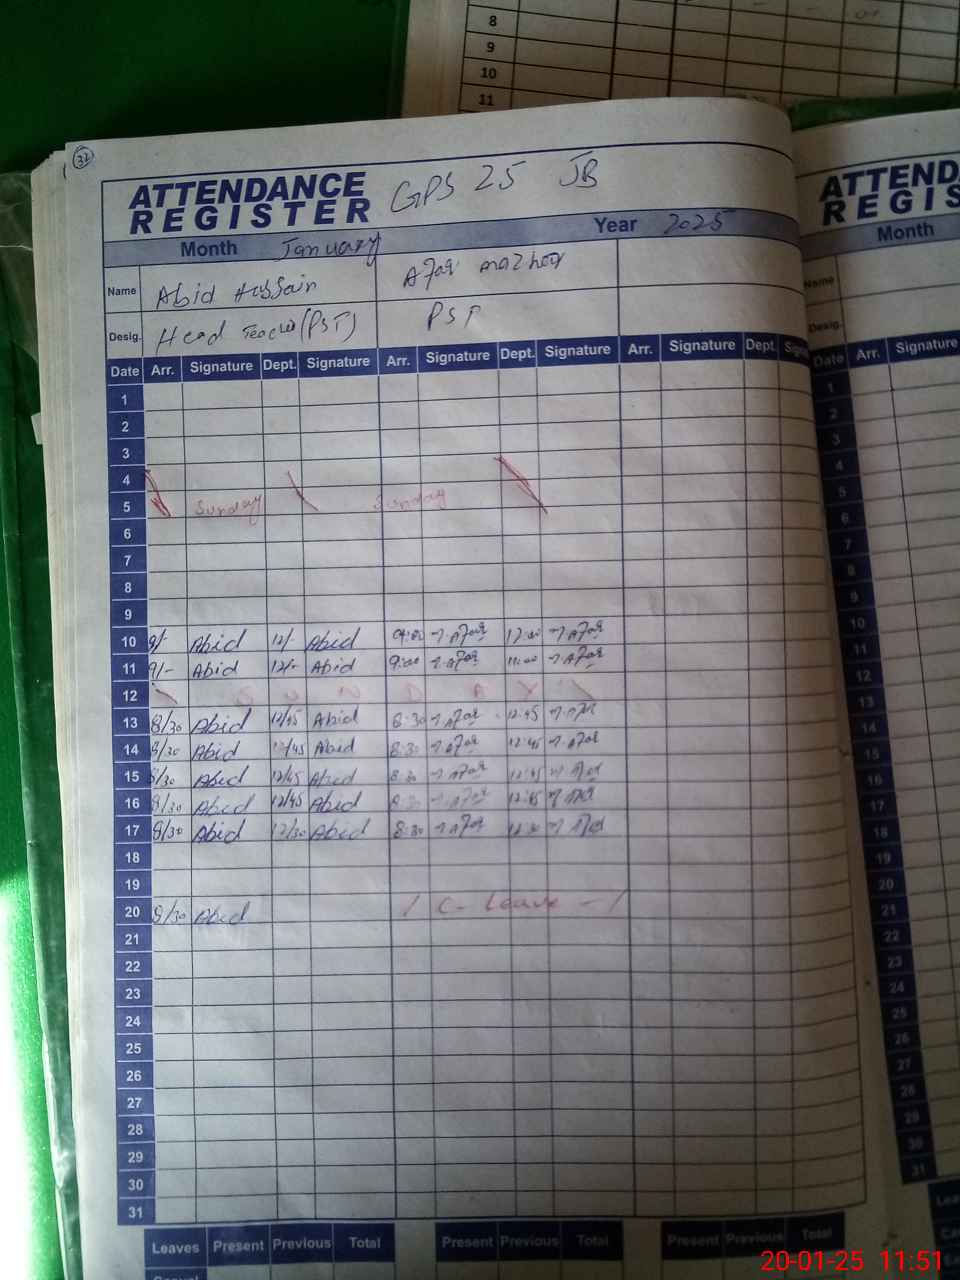 8
9
10
11
32
ATTENDANCE REGISTER GPS 25 JB
Month January Year 2025
Name Abid Hussain Afar mazhar
Desig. Head Teacher (PST) PST
Date Arr. Signature Dept. Signature Arr. Signature Dept. Signature Arr. Signature Dept.
1
2
3
4
5 Sunday Sunday
6
7
8
9
10 9/- Abid 12/- Abid 09:00 Afar 12:00 Afar
11 9/- Abid 12/- Abid 9:00 Afar Afar
12 S U N D A Y
13 8/30 Abid 12/45 Abid 8:30 Afar 12:45 Afar
14 8/30 Abid 12/45 Abid 8:30 Afar 12:45 Afar
15 8/30 Abid 12/45 Abid 8:30 Afar 12:45 Afar
16 8/30 Abid 12/45 Abid 8:30 Afar 12:45 Afar
17 8/30 Abid 12/30 Abid 8:30 Afar 12:30 Afar
18
19
20 8/30 Abid / C- Leave - /
21
22
23
24
25
26
27
28
29
30
31
Leaves Present Previous Total Present Previous Total Present Previous Total
ATTEND
REGIS
Month
Name
Desig.
Date Arr. Signature
1
2
3
4
5
6
7
8
9
10
11
12
13
14
15
16
17
18
19
20
21
22
23
24
25
26
27
28
29
30
31
20-01-25 11:51